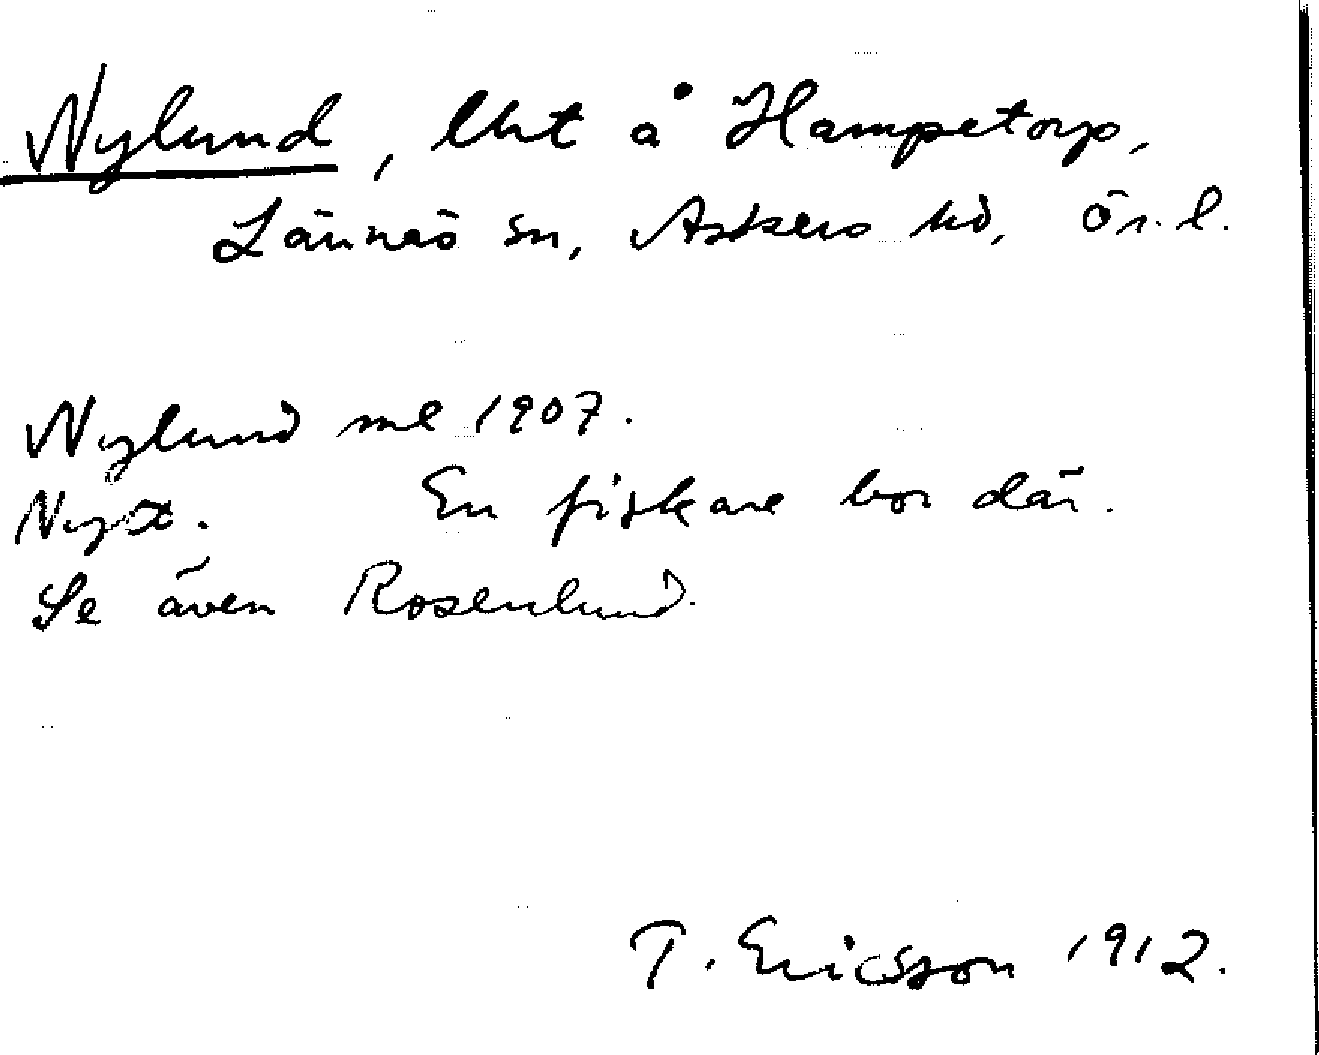 Nylund, lht å Hampetorp,
Lännäs sn, Askers hd, Ör. l.
Nylund ml 1907.
En fiskare bor där.
Se även Rosenlund.
T. Ericsson 1912.